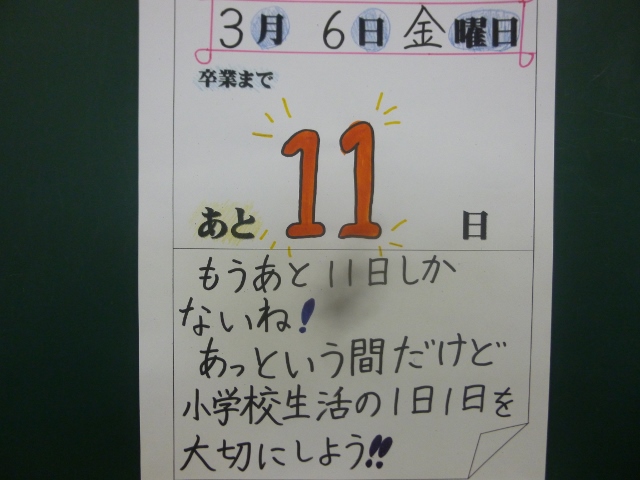 3月 6日 金曜日
卒業まで
あと 11 日
もうあと11日しか
ないね!
あっという間だけど
小学校生活の1日1日を
大切にしよう!!